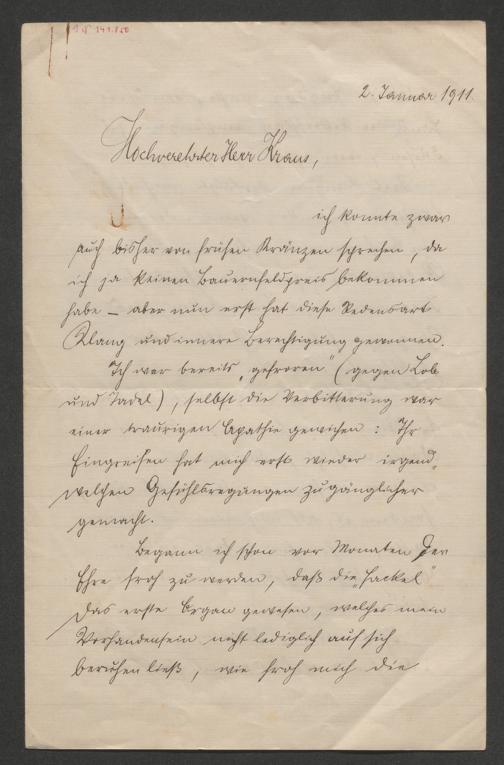 I N 141.860
2. Januar 1911.
Hochverehrter Herr Kraus,
ich konnte zwar
auch bisher von frühen Kränzen sprechen, da
ich ja keinen Bauernfeldpreis bekommen
habe – aber nun erst hat diese Redensart
Klang und innere Berechtigung gewonnen.
Ich war bereits „gefroren" (gegen Lob
und Tadel), selbst die Verbitterung war
einer traurigen Apathie gewichen: Ihr
Eingreifen hat mich erst wieder irgend-
welchen Gefühlsregungen zugänglicher
gemacht.
Begann ich schon vor Monaten der
Ehre froh zu werden, daß die „Fackel"
das erste Organ gewesen, welches mein
Vorhandensein nicht lediglich auf sich
beruhen ließ, wie froh mich die